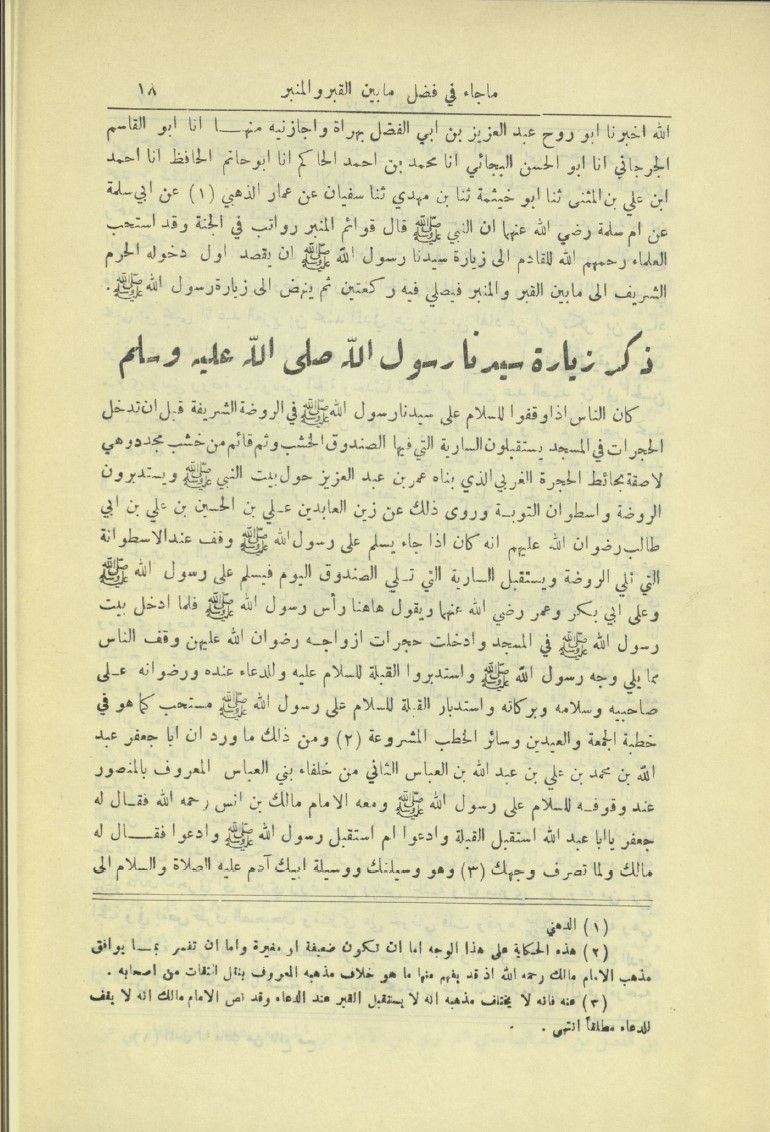 ماجاء في فضل مابين القبر والمنبر ١٨
الله اخبرنا ابو روح عبد العزيز بن ابي الفضل بهراة واجازنيه منهـا انا ابو القاسم
الجرجاني انا ابو الحسن البجائي انا محمد بن احمد الحاكم انا ابوحاتم الحافظ انا احمد
ابن علي بن المثنى ثنا ابو خيثمة ثنا بن مهدي ثنا سفيان عن عمار الذهبي (١) عن ابي سلمة
عن ام سلمة رضي الله عنهما ان النبي ﷺ قال قوائم المنبر رواتب في الجنة وقد استحب
العلماء رحمهم الله للقادم الى زيارة سيدنا رسول الله ﷺ ان يقصد اول دخوله الحرم
الشريف الى مابين القبر والمنبر فيصلي فيه ركعتين ثم ينهض الى زيارة رسول الله ﷺ.
ذكر زيارة سيدنا رسول الله صلى الله عليه وسلم
كان الناس اذا وقفوا للسلام على سيدنا رسول الله ﷺ في الروضة الشريفة قبل ان تدخل
الحجرات في المسجد يستقبلون السارية التي فيها الصندوق الخشب وثم قائم من خشب مجدد وهي
لاصقة بحائط الحجرة الغربي الذي بناه عمر بن عبد العزيز حول بيت النبي ﷺ ويستدبرون
الروضة واسطوان التوبـة وروى ذلك عن زين العابدين عـلي بن الحسين بن علي بن ابي
طالب رضوان الله عليهم انه كان اذا جاء يسلم على رسول الله ﷺ وقف عند الاسطوانة
التي تلي الروضة ويستقبل السارية التي تـلي الصندوق اليوم فيسلم على رسول الله ﷺ
وعلى ابي بكر وعمر رضي الله عنهما ويقول هاهنا رأس رسول الله ﷺ فلما ادخل بيت
رسول الله ﷺ في المسجد وادخلت حجرات ازواجـه رضوان الله عليهن وقف الناس
مما يلي وجه رسول الله ﷺ واستدبروا القبلة للسلام عليه وللدعاء عنده ورضوانه عـلى
صاحبيه وسلامه وبركاته واستدبار القبلة للسلام على رسول الله ﷺ مستحب كما هو في
خطبة الجمعة والعيدين وسائر الخطب المشروعة (٢) ومن ذلك ما ورد ان ابا جعفر عبد
الله بن محمد بن علي بن عبد الله بن العباس الثاني من خلفاء بني العباس المعروف بالمنصور
عند وقوفـه للسلام على رسول الله ﷺ ومعه الامام مالك بن انس رحمه الله فقـال له
جعفر ياابا عبد الله استقبل القبلة وادعوا ام استقبل رسول الله ﷺ وادعوا فقـال له
مالك ولما تصرف وجهك (٣) وهو وسيلتك ووسيلة ابيك آدم عليه الصلاة والسلام الى
(١) الدهني
(٢) هذه الحكاية على هذا الوجه اما ان تكون ضعيفة او مغيرة واما ان تفسر بمـا يوافق
مذهب الامام مالك رحمه الله اذ قد يفهم منها ما هو خلاف مذهبه المعروف بنقل الثقات من اصحابه .
(٣) عنه فانه لا يختلف مذهبه انه لا يستقبل القبر عند الدعاء وقد نص الامام مالك انه لا يقف
للدعاء مطلقاً انتهى .